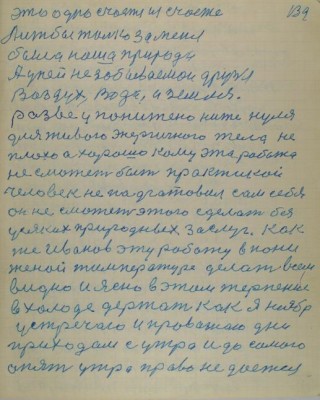 это одно счастье и счастье 139
Лишь бы только заменя
была наша природа
А у ней незабываемой друзья
Воздух, вода, а земля.
разве у понижено ниже нуля
для живого энергичного тела не
плохо а хорошо кому эта работа
не сможет быть практикой
человек не подготовил сам себя
он не сможет этого сделать без
всяких природных заслуг. Как
же Иванов эту работу в пони
женой температуре делает всем
видно и ясно в этом терпении
в холоде держат Как я ноябр
устречаю и провожаю дни
приходят с утра и до самого
опят утра право не дается